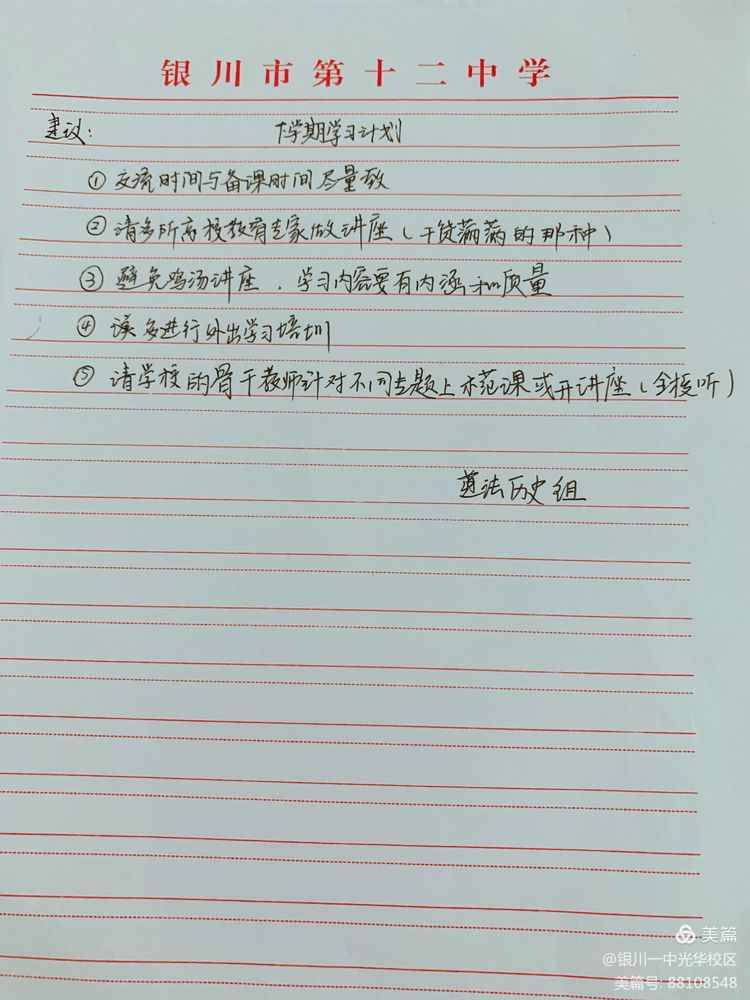 银川市第十二中学
建议: 下学期学习计划
① 交流时间与备课时间尽量致
② 请多所高校教育专家做讲座(干货满满的那种)
③ 避免鸡汤讲座,学习内容要有内涵和质量
④ 多进行外出学习培训
⑤ 请学校的骨干教师针对不同专题上示范课或开讲座(全校听)
道法历史组
美篇
@银川一中光华校区
美篇号: 88108548